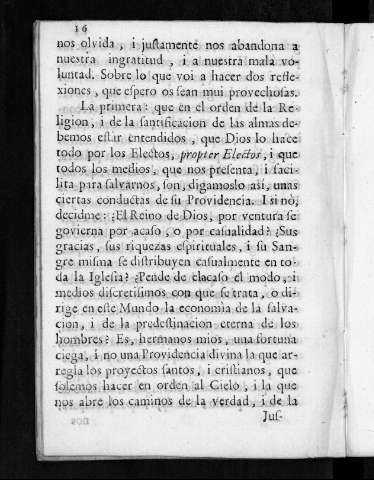 16
nos olvida, i justamente nos abandona a
nuestra ingratitud, i a nuestra mala vo-
luntad. Sobre lo que voi a hacer dos refle-
xiones, que espero os sean mui provechosas.
La primera: que en el orden de la Re-
ligion, i de la santificacion de las almas de-
bemos estar entendidos, que Dios lo hace
todo por los Electos, propter Electos, i que
todos los medios, que nos presenta, i faci-
lita para salvarnos, son, digamoslo asi, unas
ciertas conductas de su Providencia. I si nò,
decidme: ¿El Reino de Dios, por ventura se
govierna por acaso, o por casualidad? ¿Sus
gracias, sus riquezas espirituales, i su San-
gre misma se distribuyen casualmente en to-
da la Iglesia? ¿Pende de el acaso el modo, i
medios discretisimos con que se trata, o di-
rige en este Mundo la economìa de la salva-
cion, i de la predestinacion eterna de los
hombres? Es, hermanos mios, una fortuna
ciega, i no una Providencia divina la que ar-
regla los proyectos santos, i cristianos, que
solemos hacer en orden al Cielo, i la que
nos abre los caminos de la verdad, i de la
Jus-